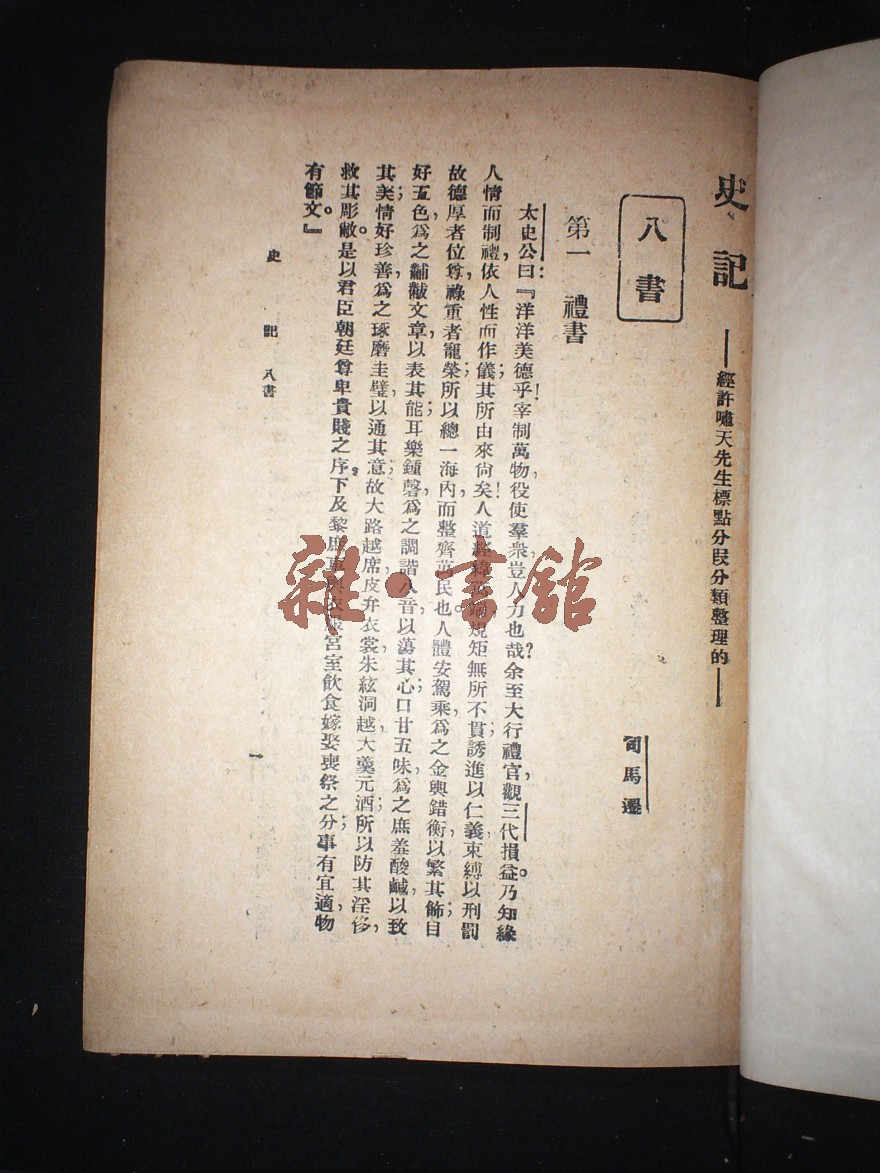 史記
——經許嘯天先生標點分段分類整理的——
司馬遷
八書
第一 禮書
太史公曰:『洋洋美德乎!宰制萬物,役使羣衆,豈人力也哉?余至大行禮官,觀三代損益。乃知緣
人情而制禮,依人性而作儀;其所由來尙矣!人道經緯萬端,規矩無所不貫,誘進以仁義,束縛以刑罰;
故德厚者位尊,祿重者寵榮;所以總一海內而整齊萬民也。人體安駕乘,爲之金輿錯衡以繁其飾;目
好五色,爲之黼黻文章,以表其能;耳樂鍾磬,爲之調諧八音以蕩其心;口甘五味,爲之庶羞酸鹹,以致
其美;情好珍善,爲之琢磨圭璧,以通其意;故大路越席,皮弁衣裳,朱絃洞越,大羹元酒;所以防其淫侈,
救其彫敝。是以君臣朝廷尊卑貴賤之序,下及黎庶車輿衣服宮室飲食嫁娶喪祭之分;事有宜適,物
有節文。』
史 記 八書
一
雜·書館